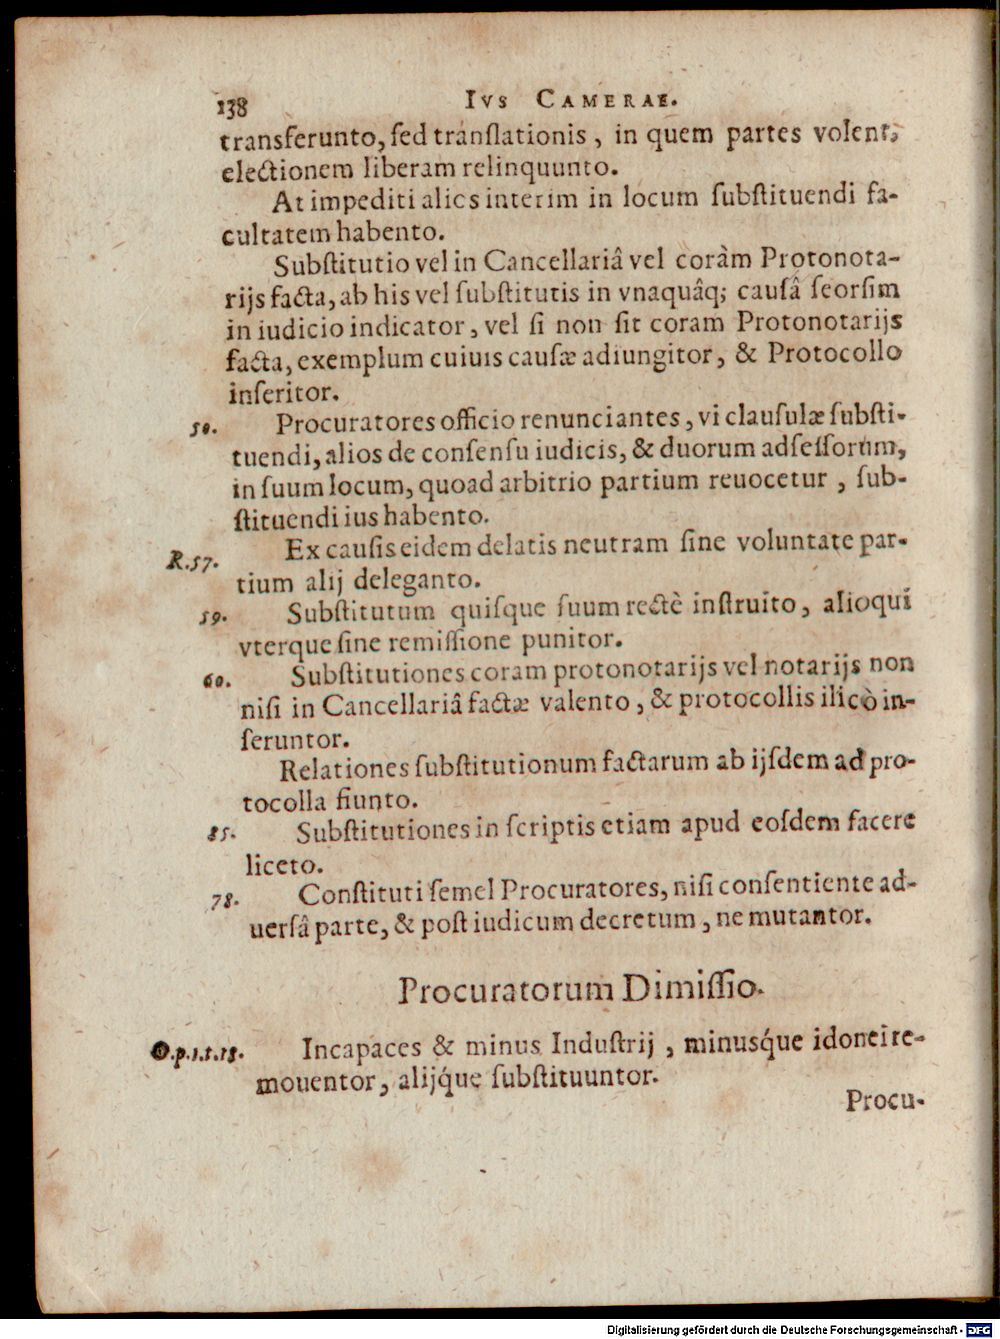 138 IVS CAMERAE.
transferunto, sed translationis, in quem partes volent,
electionem liberam relinquunto.
At impediti alios interim in locum substituendi fa-
cultatem habento.
Substitutio vel in Cancellariâ vel coràm Protonota-
rijs facta, ab his vel substitutis in vnaquâq; causâ seorsim
in iudicio indicator, vel si non sit coram Protonotarijs
facta, exemplum cuiuis causæ adiungitor, & Protocollo
inseritor.
50. Procuratores officio renunciantes, vi clausulæ substi-
tuendi, alios de consensu iudicis, & duorum adsessorum,
in suum locum, quoad arbitrio partium reuocetur, sub-
stituendi ius habento.
R.57. Ex causis eidem delatis neutram sine voluntate par-
tium alij deleganto.
59. Substitutum quisque suum rectè instruito, alioqui
vterque sine remissione punitor.
60. Substitutiones coram protonotarijs vel notarijs non
nisi in Cancellariâ factæ valento, & protocollis ilicò in-
seruntor.
Relationes substitutionum factarum ab ijsdem ad pro-
tocolla fiunto.
85. Substitutiones in scriptis etiam apud eosdem facere
liceto.
78. Constituti semel Procuratores, nisi consentiente ad-
uersâ parte, & post iudicum decretum, ne mutantor.
Procuratorum Dimissio.
O.p.1.t.18. Incapaces & minus Industrij, minusq́ue idonei re-
mouentor, alijq́ue substituuntor.
Procu-
Digitalisierung gefördert durch die Deutsche Forschungsgemeinschaft - DFG